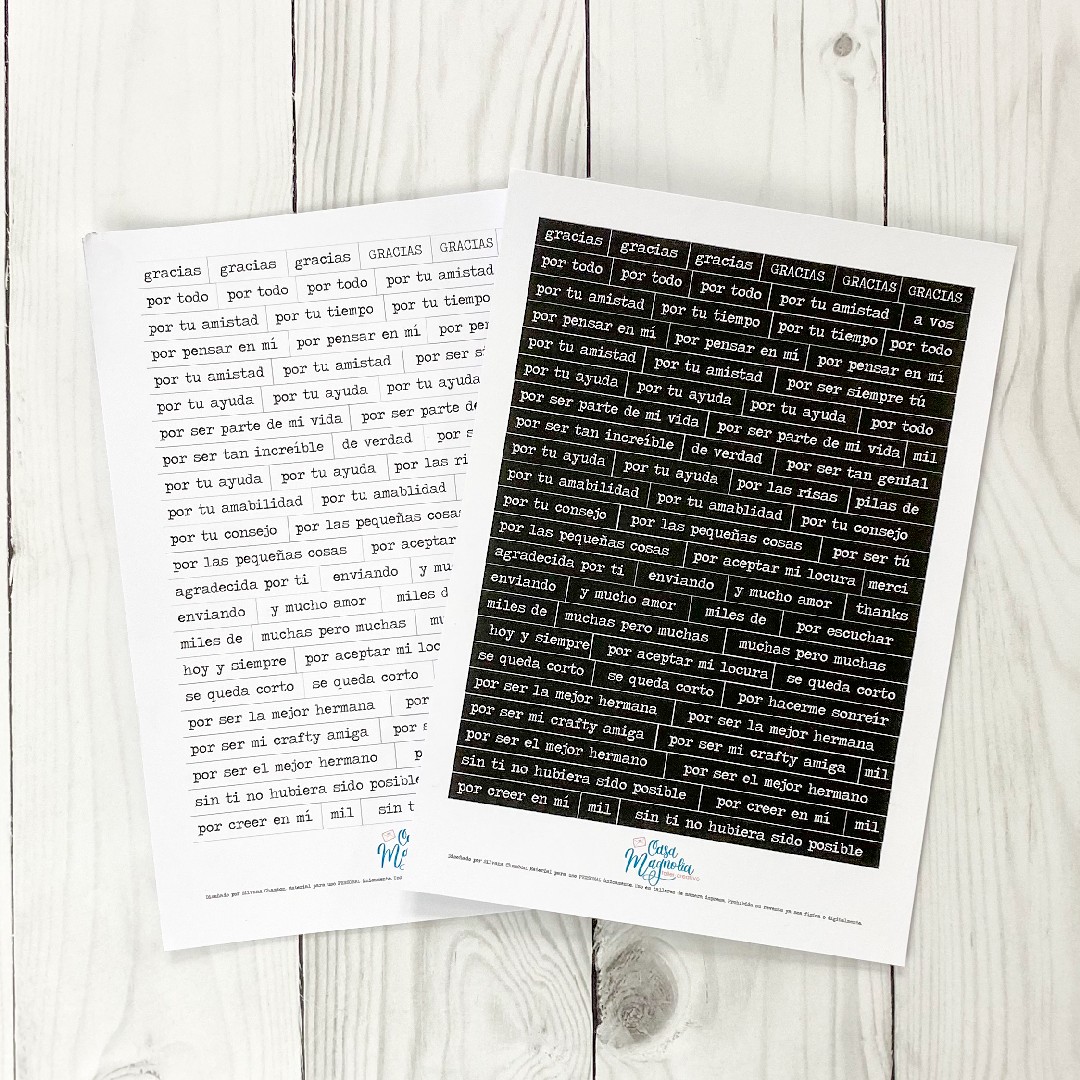 gracias gracias gracias GRACIAS GRACIAS
por todo por todo por todo por tu amistad
por tu amistad por tu tiempo por tu tiempo
por pensar en mí por pensar en mí por pen
por tu amistad por tu amistad por ser s
por tu ayuda por tu ayuda por tu ayuda
por ser parte de mi vida por ser parte de
por ser tan increíble de verdad por s
por tu ayuda por tu ayuda por las ri
por tu amabilidad por tu amablidad
por tu consejo por las pequeñas cosas
por las pequeñas cosas por aceptar
agradecida por ti enviando y mu
enviando y mucho amor miles d
miles de muchas pero muchas mu
hoy y siempre por aceptar mi loc
se queda corto se queda corto
por ser la mejor hermana por
por ser mi crafty amiga por s
por ser el mejor hermano p
sin ti no hubiera sido posible
por creer en mí mil sin t
Diseñado por Silvana Chamon. Material para uso PERSONAL únicamente.
gracias gracias gracias GRACIAS GRACIAS GRACIAS
por todo por todo por todo por tu amistad a vos
por tu amistad por tu tiempo por tu tiempo por todo
por pensar en mí por pensar en mí por pensar en mí
por tu amistad por tu amistad por ser siempre tú
por tu ayuda por tu ayuda por tu ayuda por todo
por ser parte de mi vida por ser parte de mi vida mil
por ser tan increíble de verdad por ser tan genial
por tu ayuda por tu ayuda por las risas pilas de
por tu amabilidad por tu amablidad por tu consejo
por tu consejo por las pequeñas cosas por ser tú
por las pequeñas cosas por aceptar mi locura merci
agradecida por ti enviando y mucho amor thanks
enviando y mucho amor miles de por escuchar
miles de muchas pero muchas muchas pero muchas
hoy y siempre por aceptar mi locura se queda corto
se queda corto se queda corto por hacerme sonreír
por ser la mejor hermana por ser la mejor hermana
por ser mi crafty amiga por ser mi crafty amiga mil
por ser el mejor hermano por ser el mejor hermano
sin ti no hubiera sido posible por creer en mí mil
por creer en mí mil sin ti no hubiera sido posible
Casa
Magnolia
taller creativo
Diseñado por Silvana Chamon. Material para uso PERSONAL únicamente. Uso en talleres de manera impresa. Prohibida su reventa ya sea física o digitalmente.